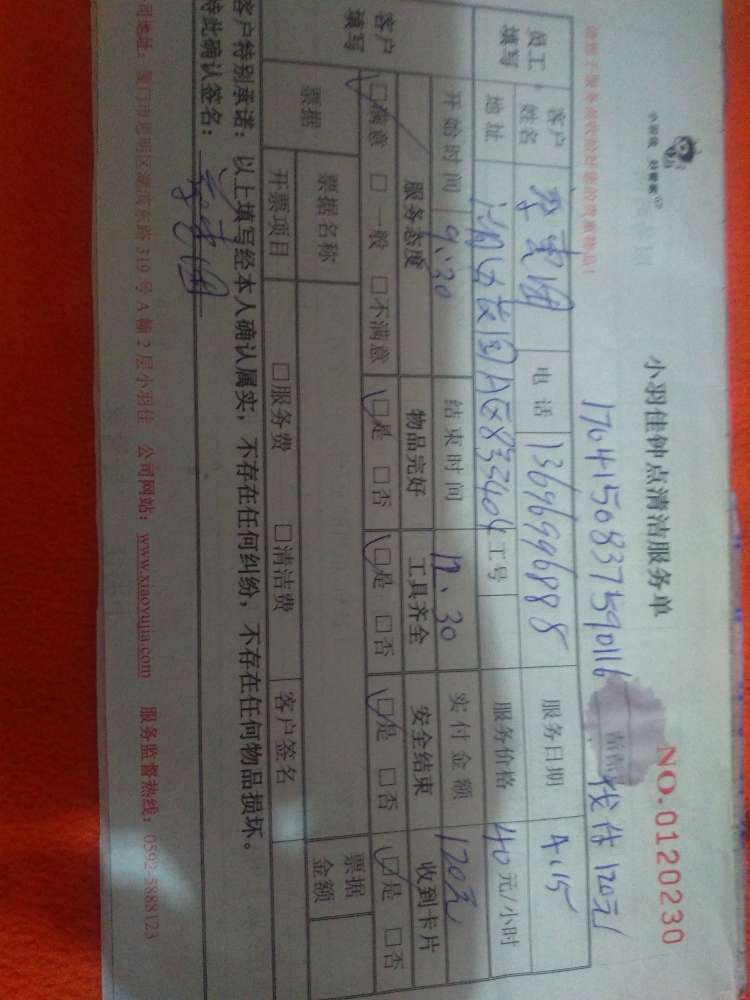 小羽佳 好管家
小羽佳钟点清洁服务单
NO.0120230
1704150837590116
120元
员工填写 客户姓名 电话 13696996888 服务日期 4.15
地址 A区833404 工号 服务价格 40元/小时
开始时间 9:30 结束时间 12:30 实付金额 120元
客户填写 服务态度 物品完好 工具齐全 安全结束 收到卡片
☑满意 □一般 □不满意 ☑是 □否 ☑是 □否 ☑是 □否 ☑是 □否
票据 票据名称 票据金额
开票项目 □服务费 □清洁费 客户签名
客户特别承诺：以上填写经本人确认属实，不存在任何纠纷，不存在任何物品损坏。
特此确认签名：
司地址：厦门市思明区湖滨东路319号A幢2层小羽佳 公司网站：www.xiaoyujia.com 服务监督热线：0592-5888123